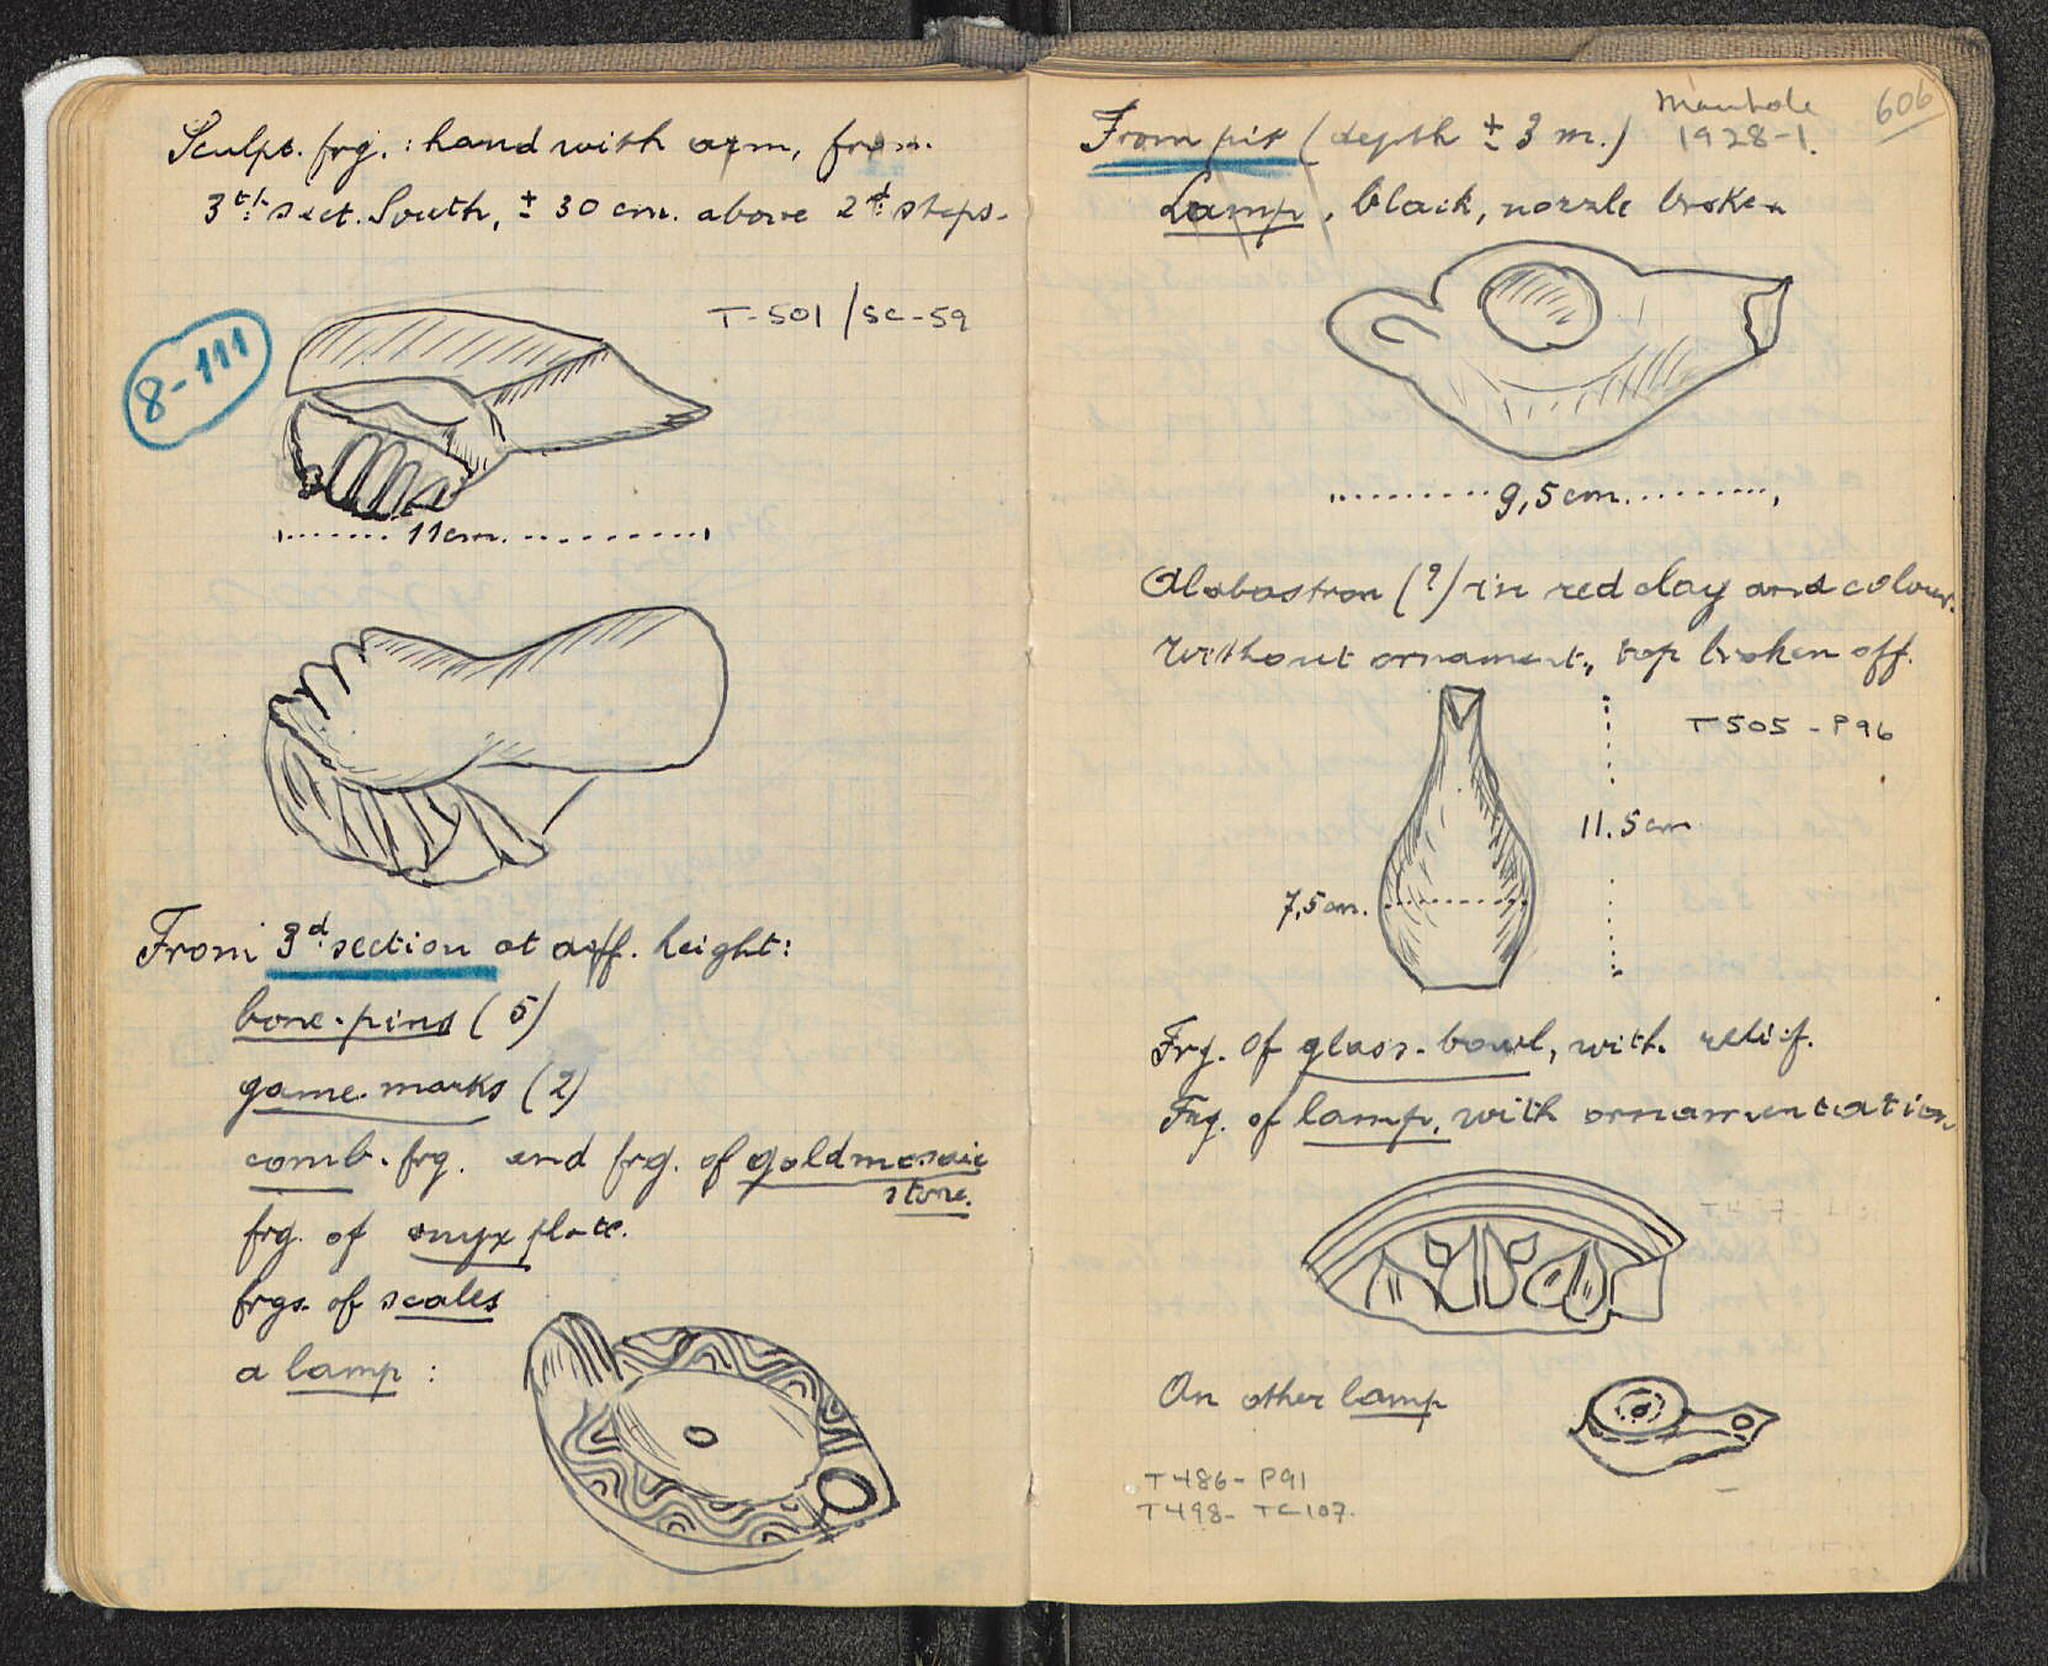 Sculpt. frg. : hand with arm, from
3th sect. South, ± 30 cm. above 2d steps.
T-501 / SC-59
8-111
11 cm.
From 3d section at diff. height:
bone-pins (5)
game-marks (2)
comb-frg. and frg. of goldmosaic
stone.
frg. of onyx plate.
frgs. of scales
a lamp :
606
Manhole
1928-1.
From pit (depth ± 3 m.)
Lamp, black, nozzle broken
9,5 cm.
Alabastron (?) in red clay and colour.
Without ornament., top broken off.
T505 - P96
11.5 cm
7,5 cm.
Frg. of glass-bowl, with relief.
Frg. of lamp, with ornamentation
An other lamp
T486 - P91
T498 - TC107.